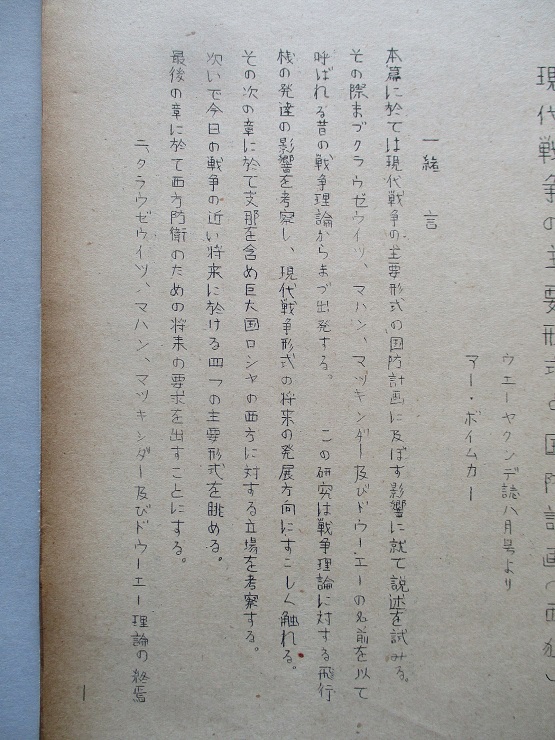 現代戦争の主要形式の国防計画の
ウエーヤクンデ誌八月号より
アー・ボイムカー
一緒言
本篇に於ては現代戦争の主要形式の国防計画に及ぼす影響に就て説述を試みる。
その際まづクラウゼウイッツ、マハン、マッキンダー及びドウーエーの名前を以て
呼ばれる昔の戦争理論からまづ出発する。 この研究は戦争理論に対する飛行
機の発達の影響を考察し、現代戦争形式の将来の発展方向にすこしく触れる。
その次の章に於て支那を含め巨大国ロシヤの西方に対する立場を考察する。
次いで今日の戦争の近い将来に於ける四つの主要形式を眺める。
最後の章に於て西方防衛のための将来の要求を出すことにする。
二、クラウゼウイッツ、マハン、マッキンダー及びドウーエー理論の終焉
1